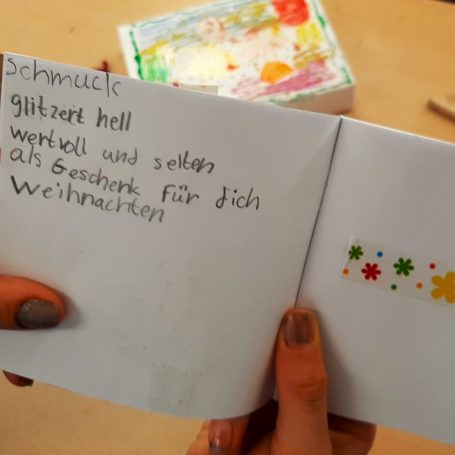 Schmuck
glitzert hell
wertvoll und selten
als Geschenk für dich
Weihnachten